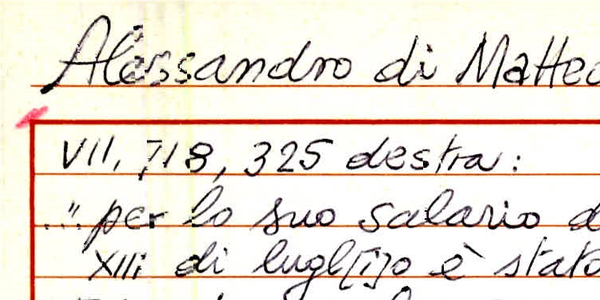 Alessandro di Matteo
VII, 718, 325 destra:
..." per lo suo salario d
XIII di lugl[i]o è stato